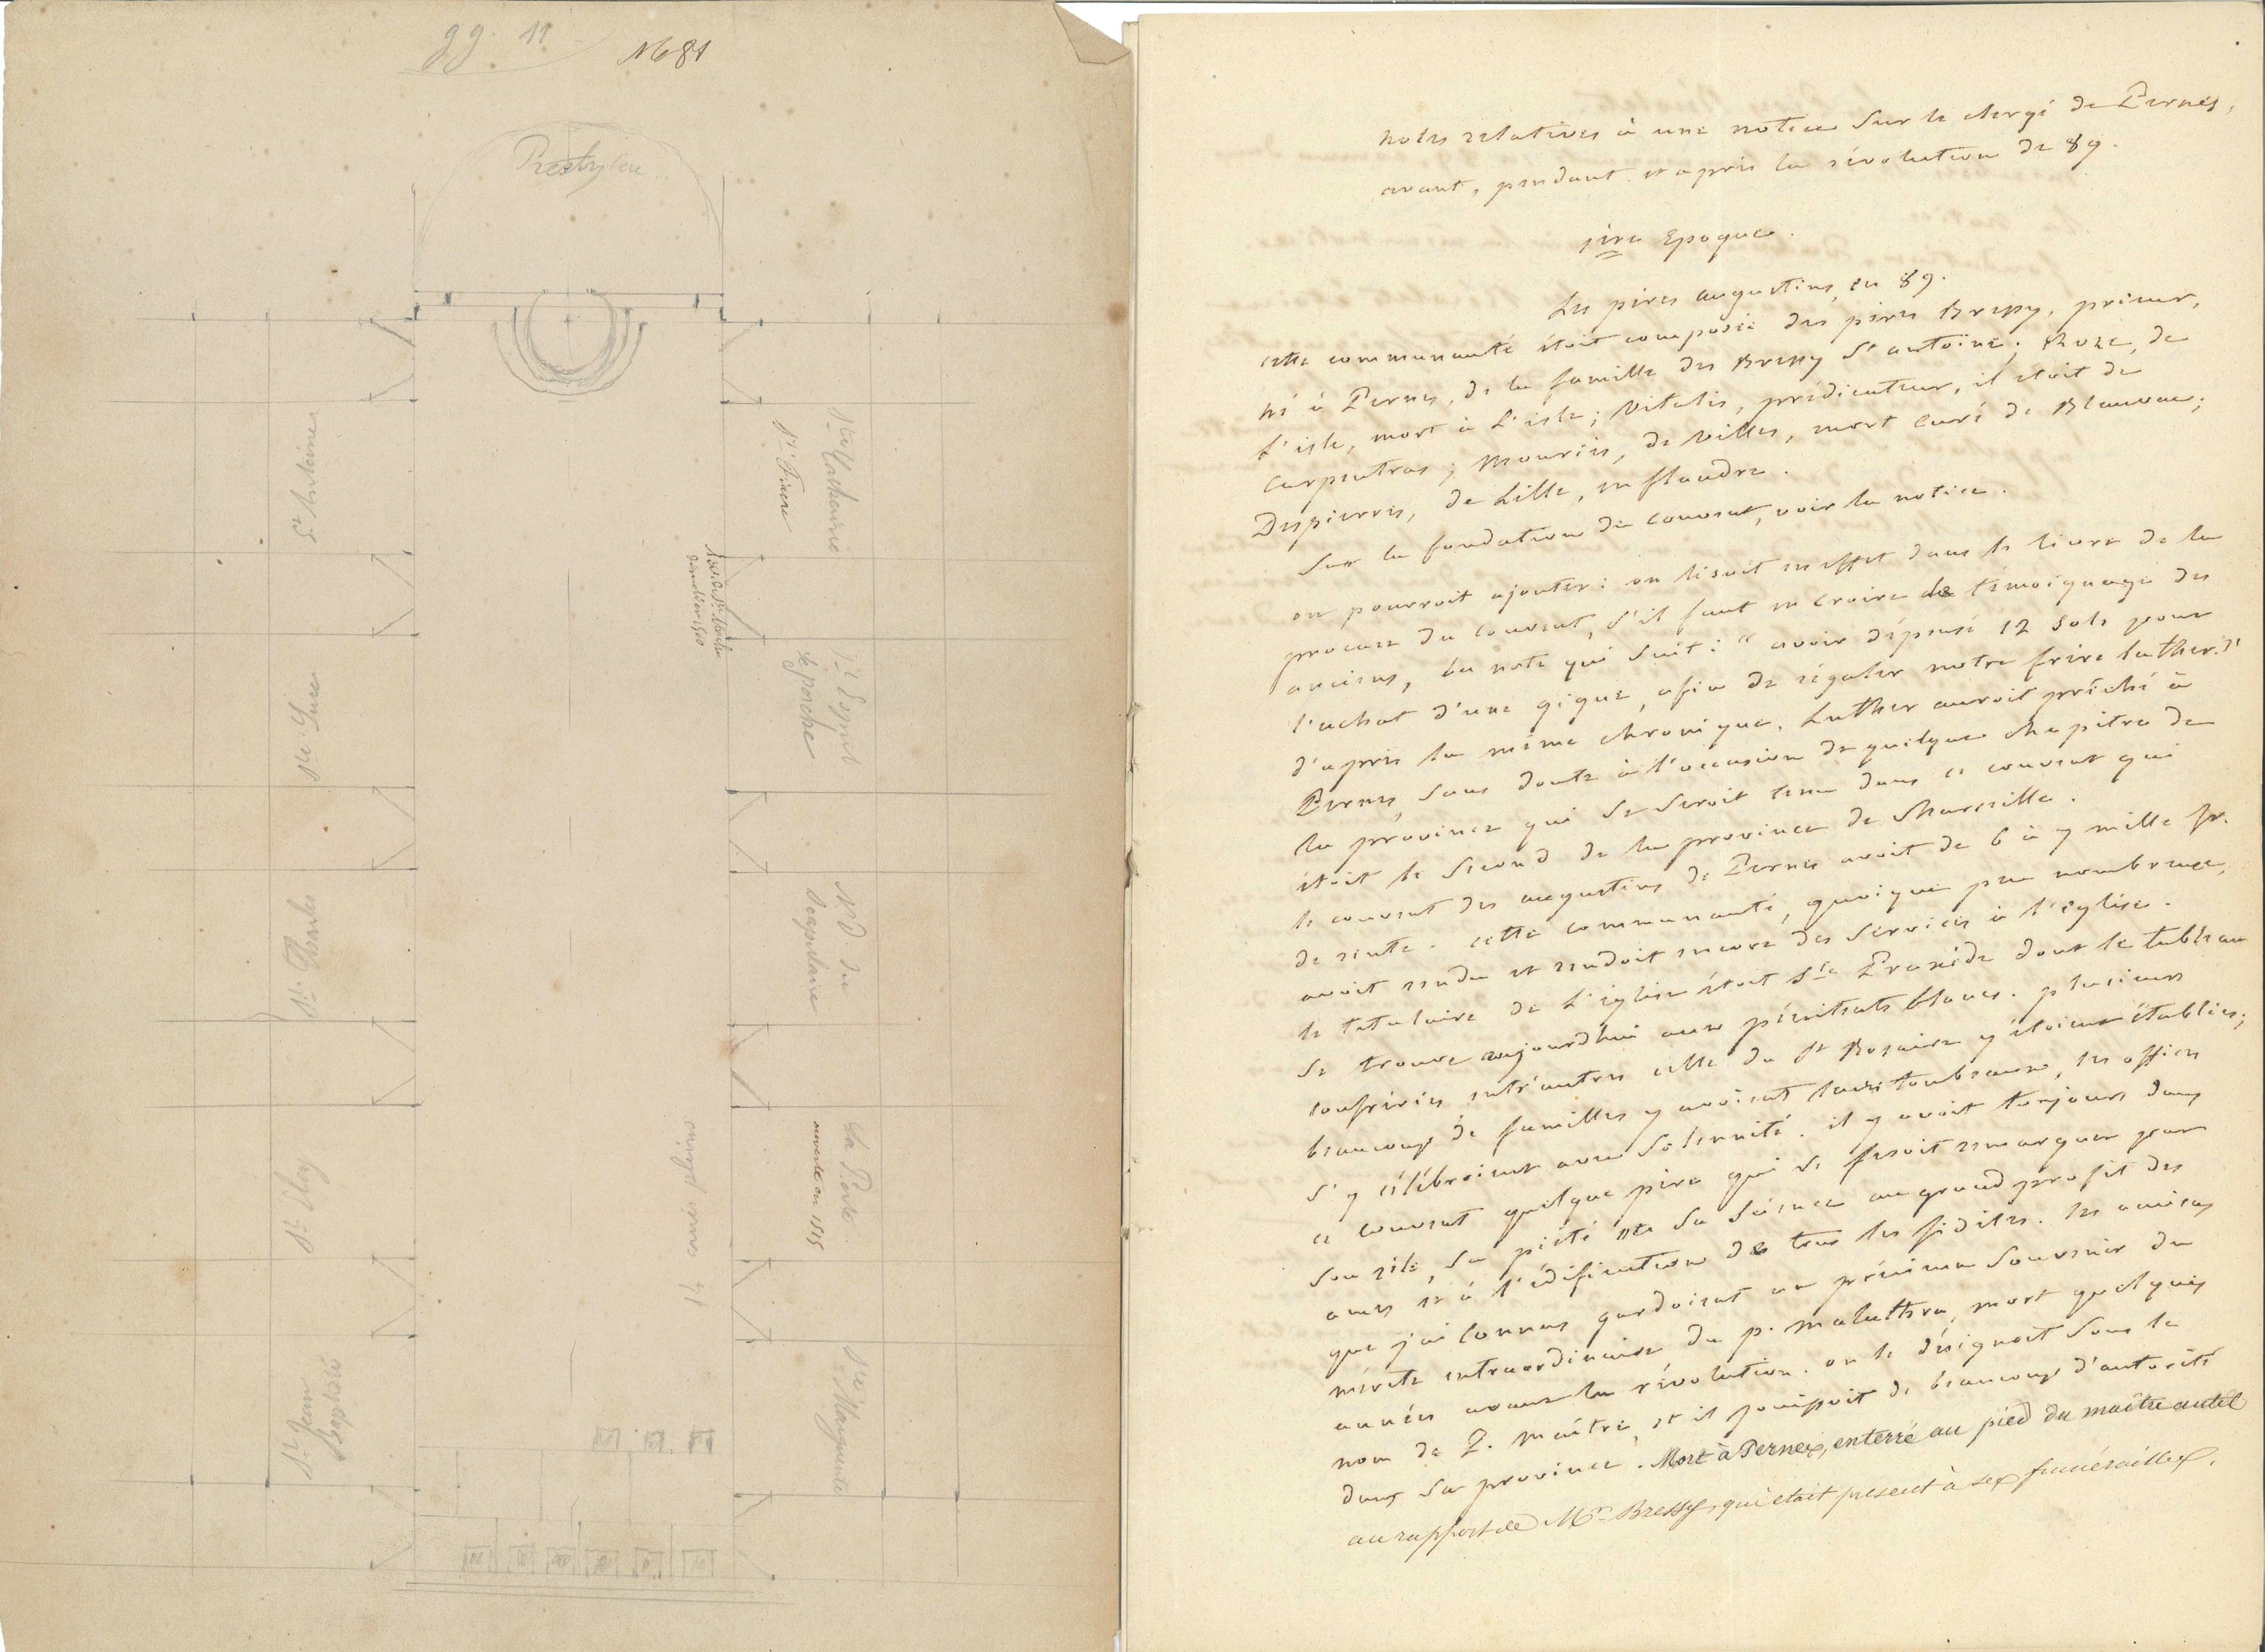 gg. 11
N° 81
Presbytère
St Antoine
Ste Luce
St Charles
St Eloy
St Jean
Baptiste
Ste Catherine
St Fiacre
St Esprit
le porche
N.D. du
Scapulaire
La Porte
ouverte en 1515
Ste Marguerite
notes relatives à une notice sur le clergé de Pernes,
avant, pendant et après la révolution de 89.
1ère Epoque.
Les pères augustins, en 89.
cette communauté étoit composée des pères Bressy, prieur,
né à Pernes, de la famille des Bressy St antoine; Roze, de
l'isle, mort à l'isle; vitalis, prédicateur, il étoit de
Carpentras; Mouriès, de villes, mort curé de Blauvac;
Despierres, de Lille, en flandre.
Sur la fondation du couvent, voir la notice.
on pourroit ajouter: on lisoit en effet dans le livre de la
procure du couvent, s'il faut en croire le témoignage des
anciens, la note qui suit: " avoir dépensé 12 sols pour
l'achat d'une gigue, afin de régaler notre frère luther."
d'après la même chronique, Luther auroit prêché à
Pernes, sans doute à l'occasion de quelque chapitre de
la province qui se seroit tenu dans ce couvent qui
étoit le second de la province de Marseille.
le couvent des augustins de Pernes avoit de 6 à 7 mille fr.
de rente. cette communauté, quoique peu nombreuse,
avoit rendu et rendoit encore des services à l'église.
le titulaire de l'église étoit Ste Praxède dont le tableau
se trouve aujourdhui aux pénitents blancs. plusieurs
confréries entr'autres celle du St Rosaire y étoient établies;
beaucoup de familles y avoient leurs tombeaux, les offices
s'y célébroient avec solennité. il y avoit toujours dans
ce couvent quelque père qui se fesoit remarquer par
son zèle, sa piété et sa science au grand profit des
ames et à l'édification de tous les fidèles. les anciens
que j'ai connus gardoient un précieux souvenir du
mérite extraordinaire du p. Malathra, mort quelques
années avant la révolution. on le désignoit sous le
nom de P. Maître, et il jouissoit de beaucoup d'autorité
dans sa province. Mort à Pernes, enterré au pied du maître autel
au rapport de Mr Bressy, qui était présent à ses funérailles.